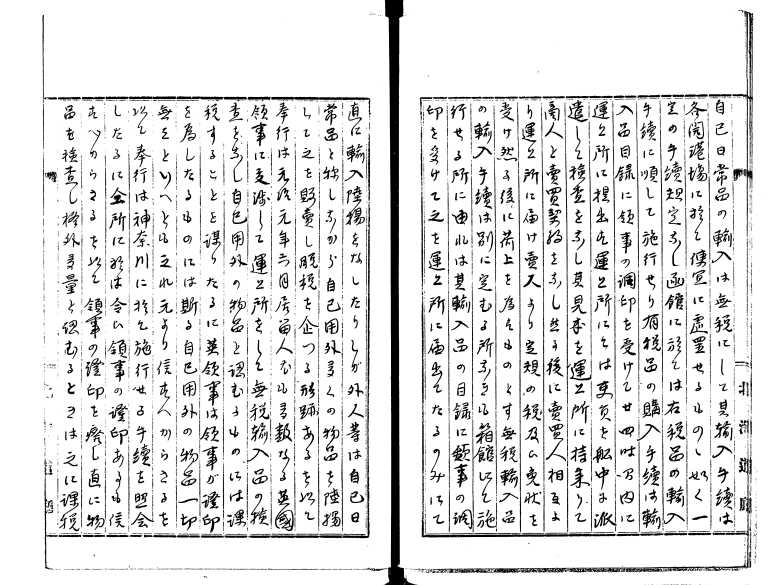 自己日常品の輸入は無税にして其輸入手続は
各開港場に於て便宜に処置せるものゝ如く一
定の手続規定なし函館に於ては有税品の輸入
手続に順して施行せり有税品の購入手続は輸
入品目録に領事の調印を受けて廿四時間内に
運上所に提出し運上所にては吏員を船中に派
遣して検査をなし其見本を運上所に持来りて
商人と売買契約をなし然る後に売買人相互よ
り運上所に届け売人より定規の税及ひ免状を
受け然る後に荷上を為すものとす無税輸入品
の輸入手続は別に定むる所なきも箱館にて施
行せる所に由れは其輸入品の目録に領事の調
印を受けて之を運上所に届出てたるのみにて
直に輸入陸揚をなしたりしが外人等は自己日
常品と称しなから自己用外多くの物品を陸揚
して之を販売し脱税を企つる形跡あるを以て
奉行は元治元年六月居留人尤も多数なる英国
領事に交渉して運上所をして無税輸入品の検
査をなし自己用外の物品と認むるものには課
税することを謀りたるに英領事は領事が証印
を為したるものには断る自己用外の物品一切
無といへとも之れ元より信すへからさるを
以て奉行は神奈川に於て施行せる手続を照会
したるに同所に於ては令ひ領事の証印あるも信
すへからさるを以て領事の証印を廃し直に物
品を検査し格外多量と認むるときは之に課税
北海道庁